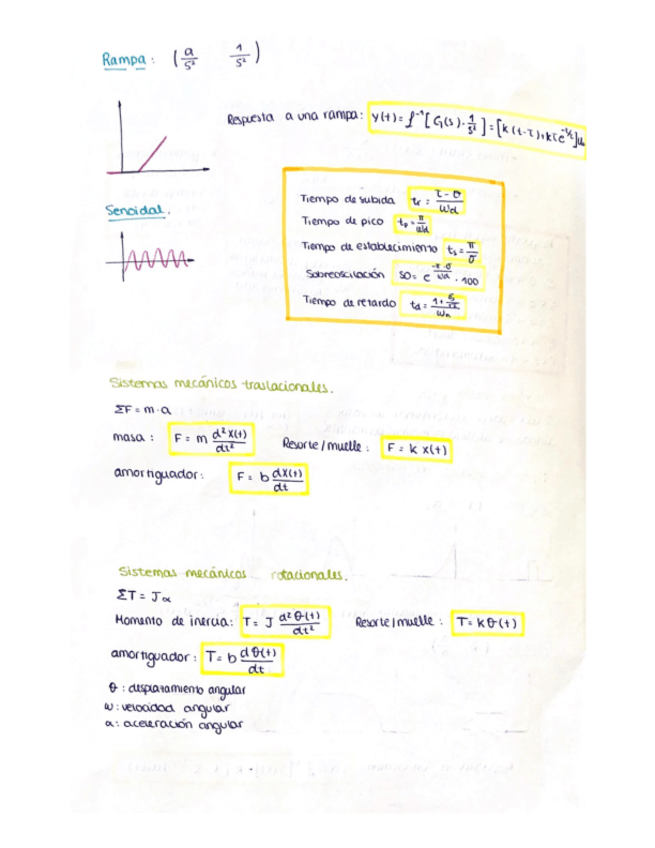 Rampa: (a/s² 1/s²)
Respuesta a una rampa: y(t) = ℒ⁻¹[G(s)·1/s²] = [k(t-τ)+kτe^-t/τ]u
Senoidal.
Tiempo de subida tr = π-θ/ωd
Tiempo de pico tp = π/ωd
Tiempo de establecimiento ts = π/σ
Sobreoscilación SO = e^-π·σ/ωd · 100
Tiempo de retardo td =
Sistemas mecánicos traslacionales.
ΣF = m·a
masa: F = m d²x(t)/dt² Resorte/muelle: F = k x(t)
amortiguador: F = b dx(t)/dt
Sistemas mecánicos rotacionales.
ΣT = Jα
Momento de inercia: T = J d²θ(t)/dt² Resorte/muelle: T = kθ(t)
amortiguador: T = b dθ(t)/dt
θ: desplazamiento angular
ω: velocidad angular
α: aceleración angular